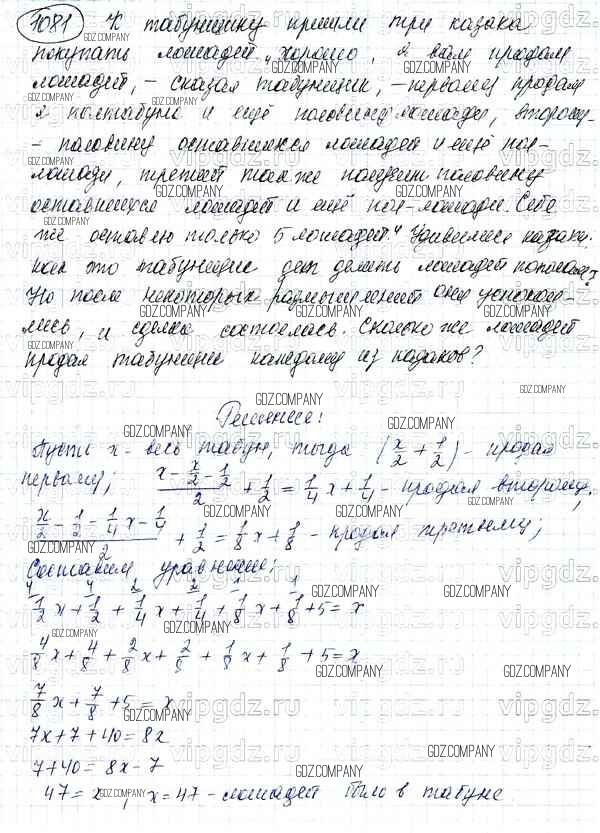 1081 К табунщику пришли три казака
покупать лошадей. „Хорошо, я вам продам
лошадей, – сказал табунщик, – первому продам
я полтабуна и ещё половину лошади, второму –
– половину оставшихся лошадей и ещё пол-
лошади, третий также получит половину
оставшихся лошадей и ещё пол-лошади. Себе
же оставлю только 5 лошадей." Удивились казаки,
как это табунщик будет делить лошадей пополам?
Но после некоторых размышлений они успокои-
лись, и сделка состоялась. Сколько же лошадей
продал табунщик каждому из казаков?
Решение:
Пусть x - весь табун, тогда (x/2 + 1/2) - продал
первому; (x - x/2 - 1/2)/2 + 1/2 = 1/4 x + 1/4 - продал второму;
(x/2 - 1/2 - 1/4 x - 1/4)/2 + 1/2 = 1/8 x + 1/8 - продал третьему;
Составим уравнение:
1/2 x + 1/2 + 1/4 x + 1/4 + 1/8 x + 1/8 + 5 = x
4/8 x + 4/8 + 2/8 x + 2/8 + 1/8 x + 1/8 + 5 = x
7/8 x + 7/8 + 5 = x
7x + 7 + 40 = 8x
7 + 40 = 8x - 7
47 = x, x = 47 - лошадей было в табуне